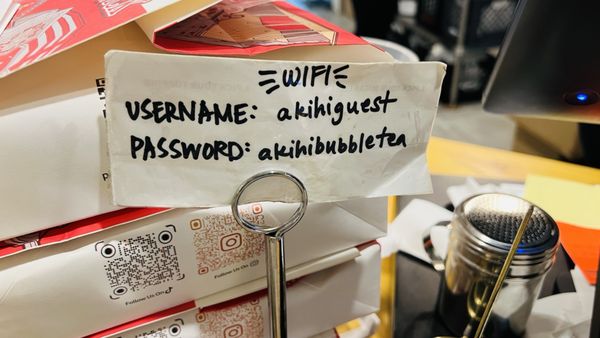 WIFI
USERNAME: akihiguest
PASSWORD: akihibubbletea
Follow Us On
Follow Us On